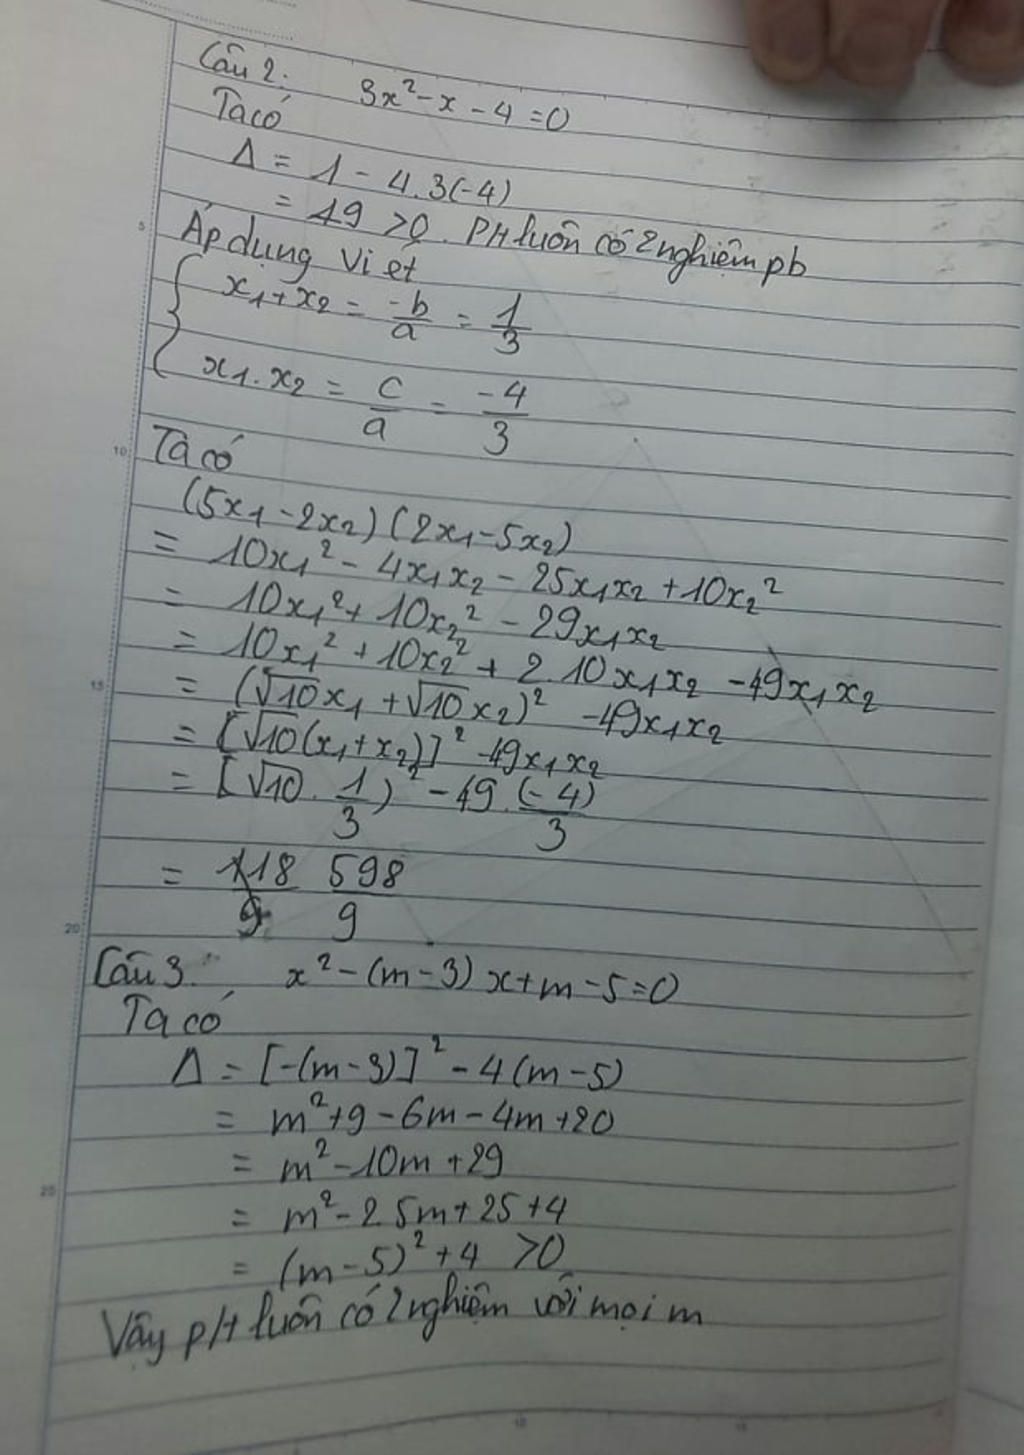 Câu 2: 3x² - x - 4 = 0
Ta có
Δ = 1 - 4.3(-4)
= 49 > 0. PH luôn có 2 nghiệm pb
Áp dụng Vi ét
x₁ + x₂ = -b/a = 1/3
x₁ . x₂ = c/a = -4/3
Ta có
(5x₁ - 2x₂)(2x₁ - 5x₂)
= 10x₁² - 4x₁x₂ - 25x₁x₂ + 10x₂²
= 10x₁² + 10x₂² - 29x₁x₂
= 10x₁² + 10x₂² + 2.10x₁x₂ - 49x₁x₂
= (√10x₁ + √10x₂)² - 49x₁x₂
= [√10(x₁ + x₂)]² - 49x₁x₂
= [√10 . 1/3)² - 49 . (-4)/3
= 598/9
Câu 3: x² - (m - 3)x + m - 5 = 0
Ta có
Δ = [-(m - 3)]² - 4(m - 5)
= m² + 9 - 6m - 4m + 20
= m² - 10m + 29
= m² - 2.5m + 25 + 4
= (m - 5)² + 4 > 0
Vậy pH luôn có 2 nghiệm với mọi m